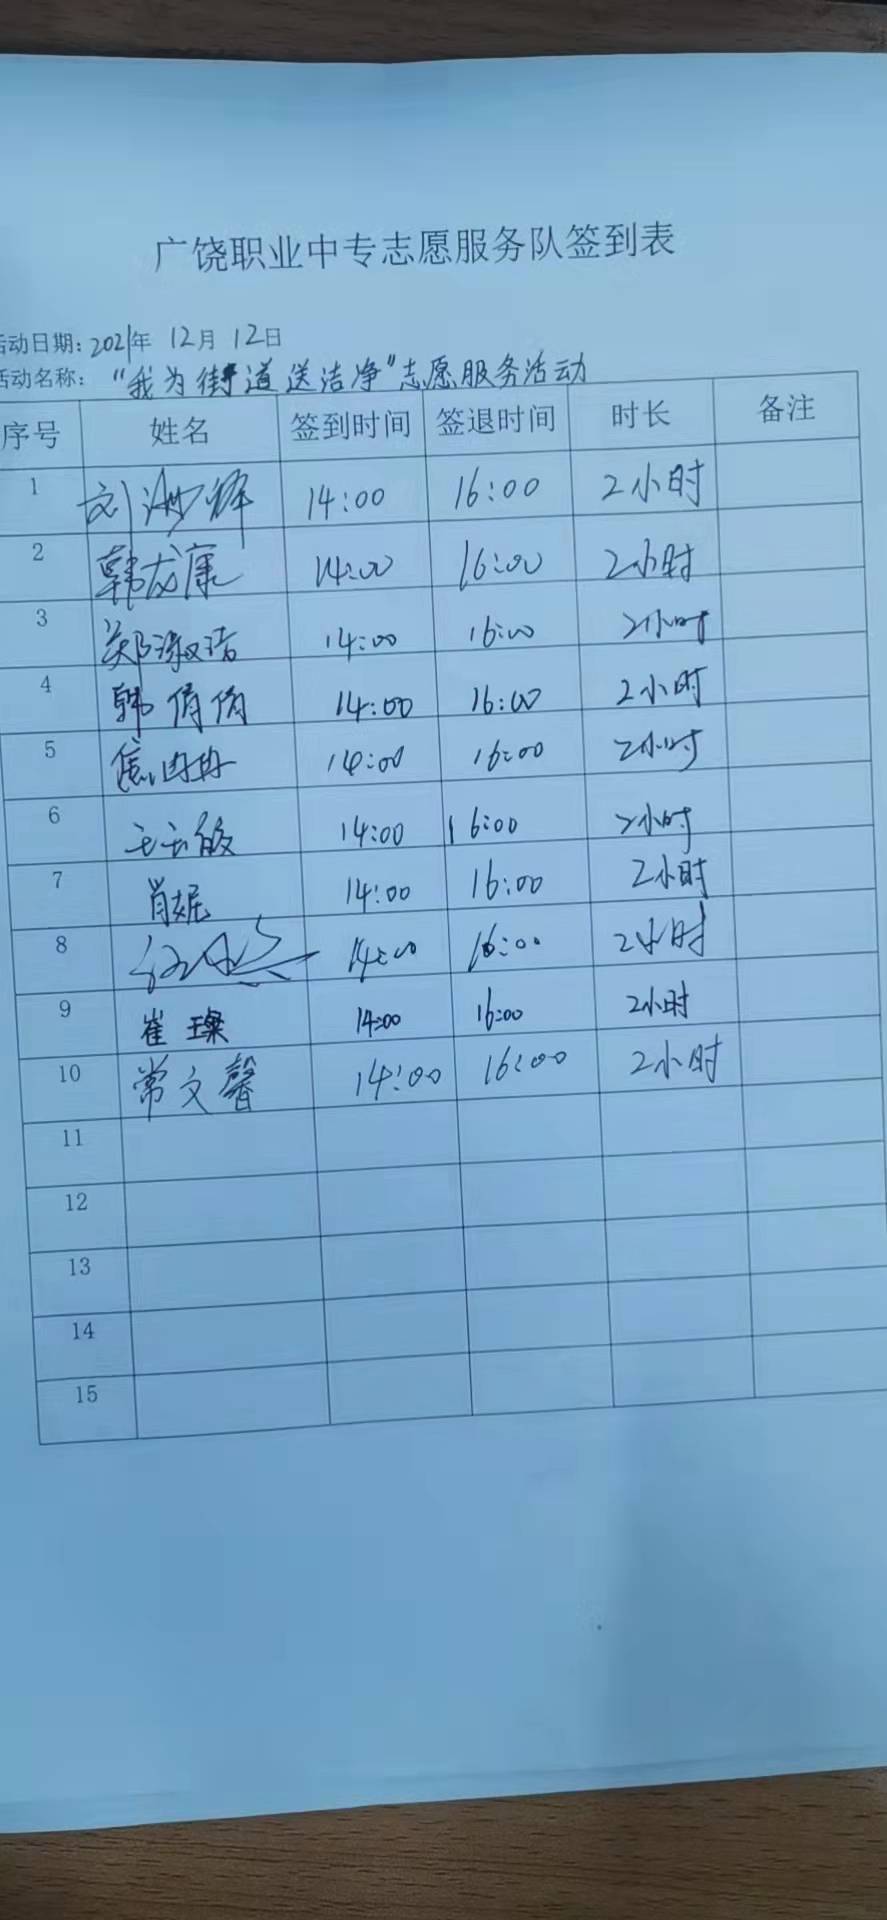 广饶职业中专志愿服务队签到表
活动日期：2021年 12月 12日
活动名称： “我为街道送洁净”志愿服务活动
序号 姓名 签到时间 签退时间 时长 备注
1 刘 14:00 16:00 2小时
2 韩龙康 14:00 16:00 2小时
3 郑淑洁 14:00 16:00 2小时
4 韩倩倩 14:00 16:00 2小时
5 焦冉冉 14:00 16:00 2小时
6 14:00 16:00 2小时
7 肖娓 14:00 16:00 2小时
8 14:00 16:00 2小时
9 崔璨 14:00 16:00 2小时
10 常文馨 14:00 16:00 2小时
11
12
13
14
15